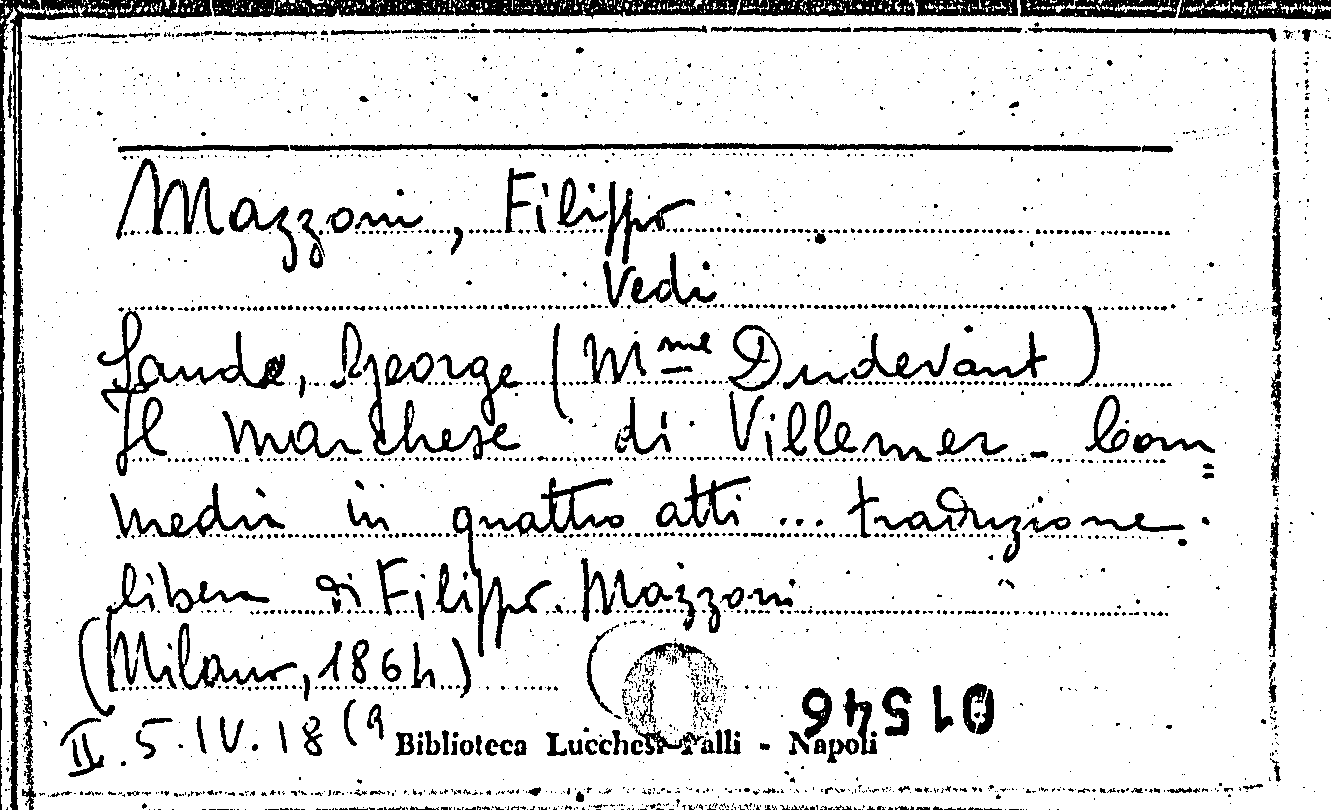 Mazzoni, Filippo
Vedi
Sand, George (Mme Dudevant)
Il marchese di Villemer - Com=
media in quattro atti ... traduzione
libera di Filippo Mazzoni
(Milano, 1864)
II. 5. IV. 18 (9
Biblioteca Lucchesi Palli - Napoli
01546